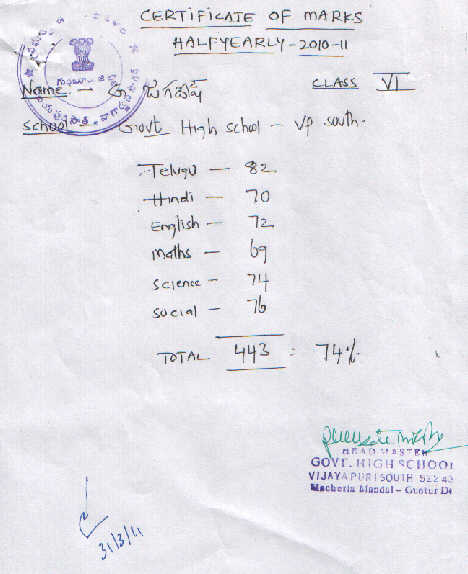 CERTIFICATE OF MARKS
HALFYEARLY - 2010-11
Name - జగదీష్
CLASS VI
School Govt High school - VP south.
Telugu - 82
Hindi - 70
English - 72
Maths - 69
Science - 74
Social - 76
TOTAL 443 = 74%
HEAD MASTER
GOVT. HIGH SCHOOL
VIJAYAPURI SOUTH 522 43
Macherla Mandal - Guntur Dt
31/3/11